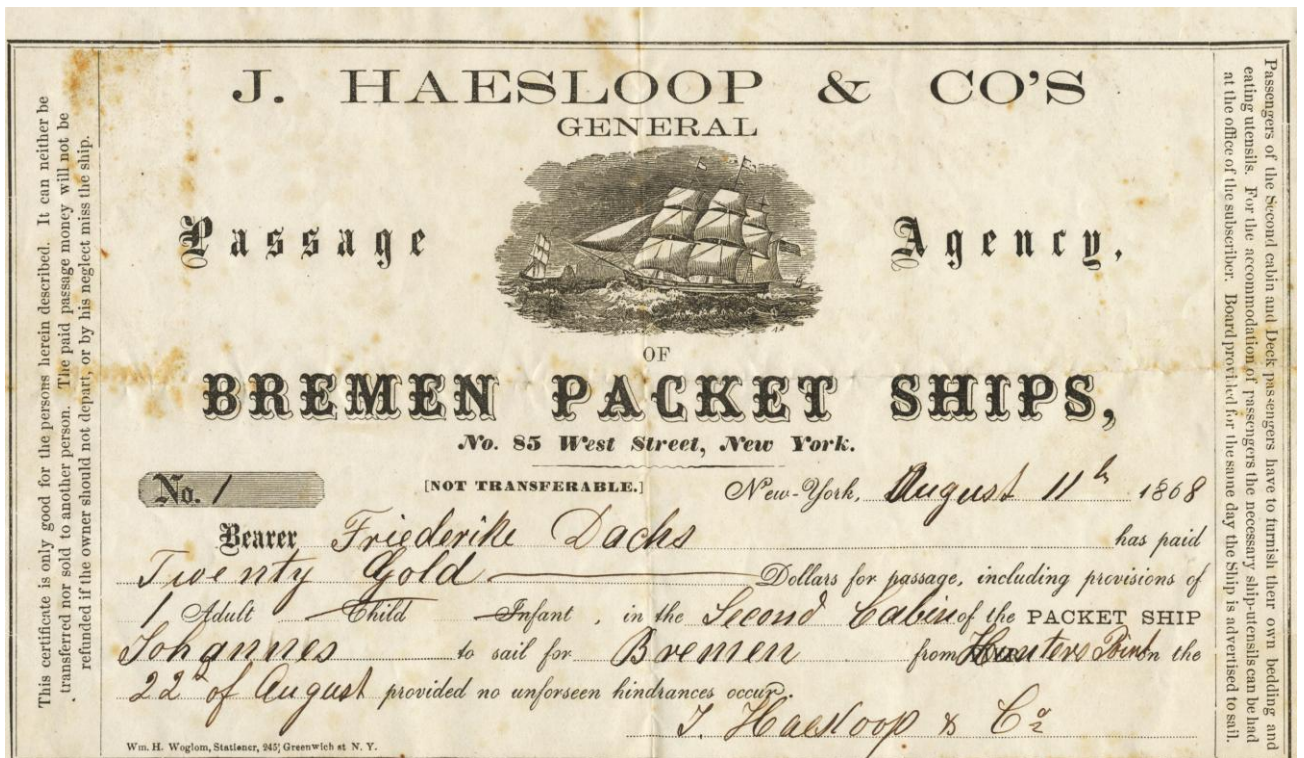 This certificate is only good for the persons herein described. It can neither be
transferred nor sold to another person. The paid passage money will not be
refunded if the owner should not depart, or by his neglect miss the ship.
J. HAESLOOP & CO'S
GENERAL
Passage Agency,
OF
BREMEN PACKET SHIPS,
No. 85 West Street, New York.
No. 1 [NOT TRANSFERABLE.] New-York, August 11th 1868
Bearer Friederike Dachs has paid
Twenty Gold Dollars for passage, including provisions of
1 Adult Child Infant, in the Second Cabin of the PACKET SHIP
Johannes to sail for Bremen from Hunters Point on the
22d of August provided no unforseen hindrances occur.
J. Haesloop & Co
Wm. H. Woglom, Stationer, 245, Greenwich st N. Y.
Passengers of the Second cabin and Deck passengers have to furnish their own bedding and
eating utensils. For the accommodation of passengers the necessary ship-utensils can be had
at the office of the subscriber. Board provided for the same day the Ship is advertised to sail.